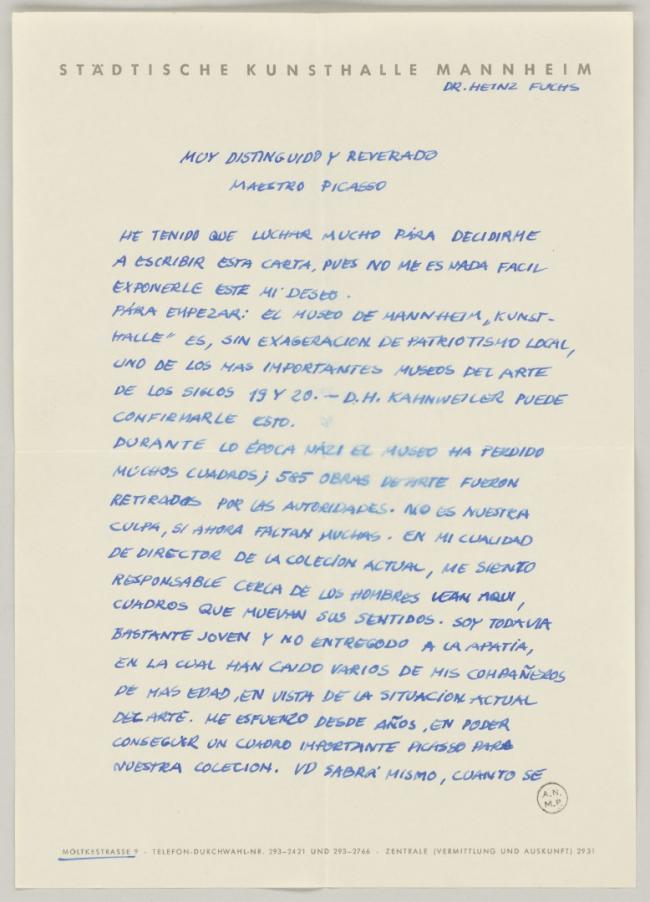 STÄDTISCHE KUNSTHALLE MANNHEIM
DR. HEINZ FUCHS
MUY DISTINGUIDO Y REVERADO
MAESTRO PICASSO
HE TENIDO QUE LUCHAR MUCHO PÁRA DECIDIRME
A ESCRIBIR ESTA CARTA, PUES NO ME ES NADA FACIL
EXPONERLE ESTE MI DESEO.
PÁRA EMPEZAR: EL MUSEO DE MANNHEIM „KUNST-
HALLE" ES, SIN EXAGERACION DE PATRIOTISMO LOCAL,
UNO DE LOS MAS IMPORTANTES MUSEOS DEL ARTE
DE LOS SIGLOS 19 Y 20. – D.H. KAHNWEILER PUEDE
CONFIRMARLE ESTO.
DURANTE LO ÉPOCA NÁZI EL MUSEO HA PERDIDO
MUCHOS CUADROS; 585 OBRAS DE ARTE FUERON
RETIRADOS POR LAS AUTORIDADES. NO ES NUESTRA
CULPA, SI AHORA FALTAN MUCHAS. EN MI CUALIDAD
DE DIRECTOR DE LA COLECION ACTUAL, ME SIENTO
RESPONSABLE CERCA DE LOS HOMBRES VEAN AQUI,
CUADROS QUE MUEVAN SUS SENTIDOS. SOY TODAVIA
BASTANTE JOVEN Y NO ENTREGODO A LA APATÍA,
EN LA CUAL HAN CAIDO VARIOS DE MIS COMPAÑEROS
DE MAS EDAD, EN VISTA DE LA SITUACION ACTUAL
DEL ARTE. ME ESFUENZO DESDE AÑOS, EN PODER
CONSEGUIR UN CUADRO IMPORTANTE PICASSO PARA
NUESTRA COLECION. VD SABRÁ MISMO, CUANTO SE
A.N.
M.P.
MOLTKESTRASSE 9 - TELEFON-DURCHWAHL-NR. 293-2421 UND 293-2766 - ZENTRALE (VERMITTLUNG UND AUSKUNFT) 2931